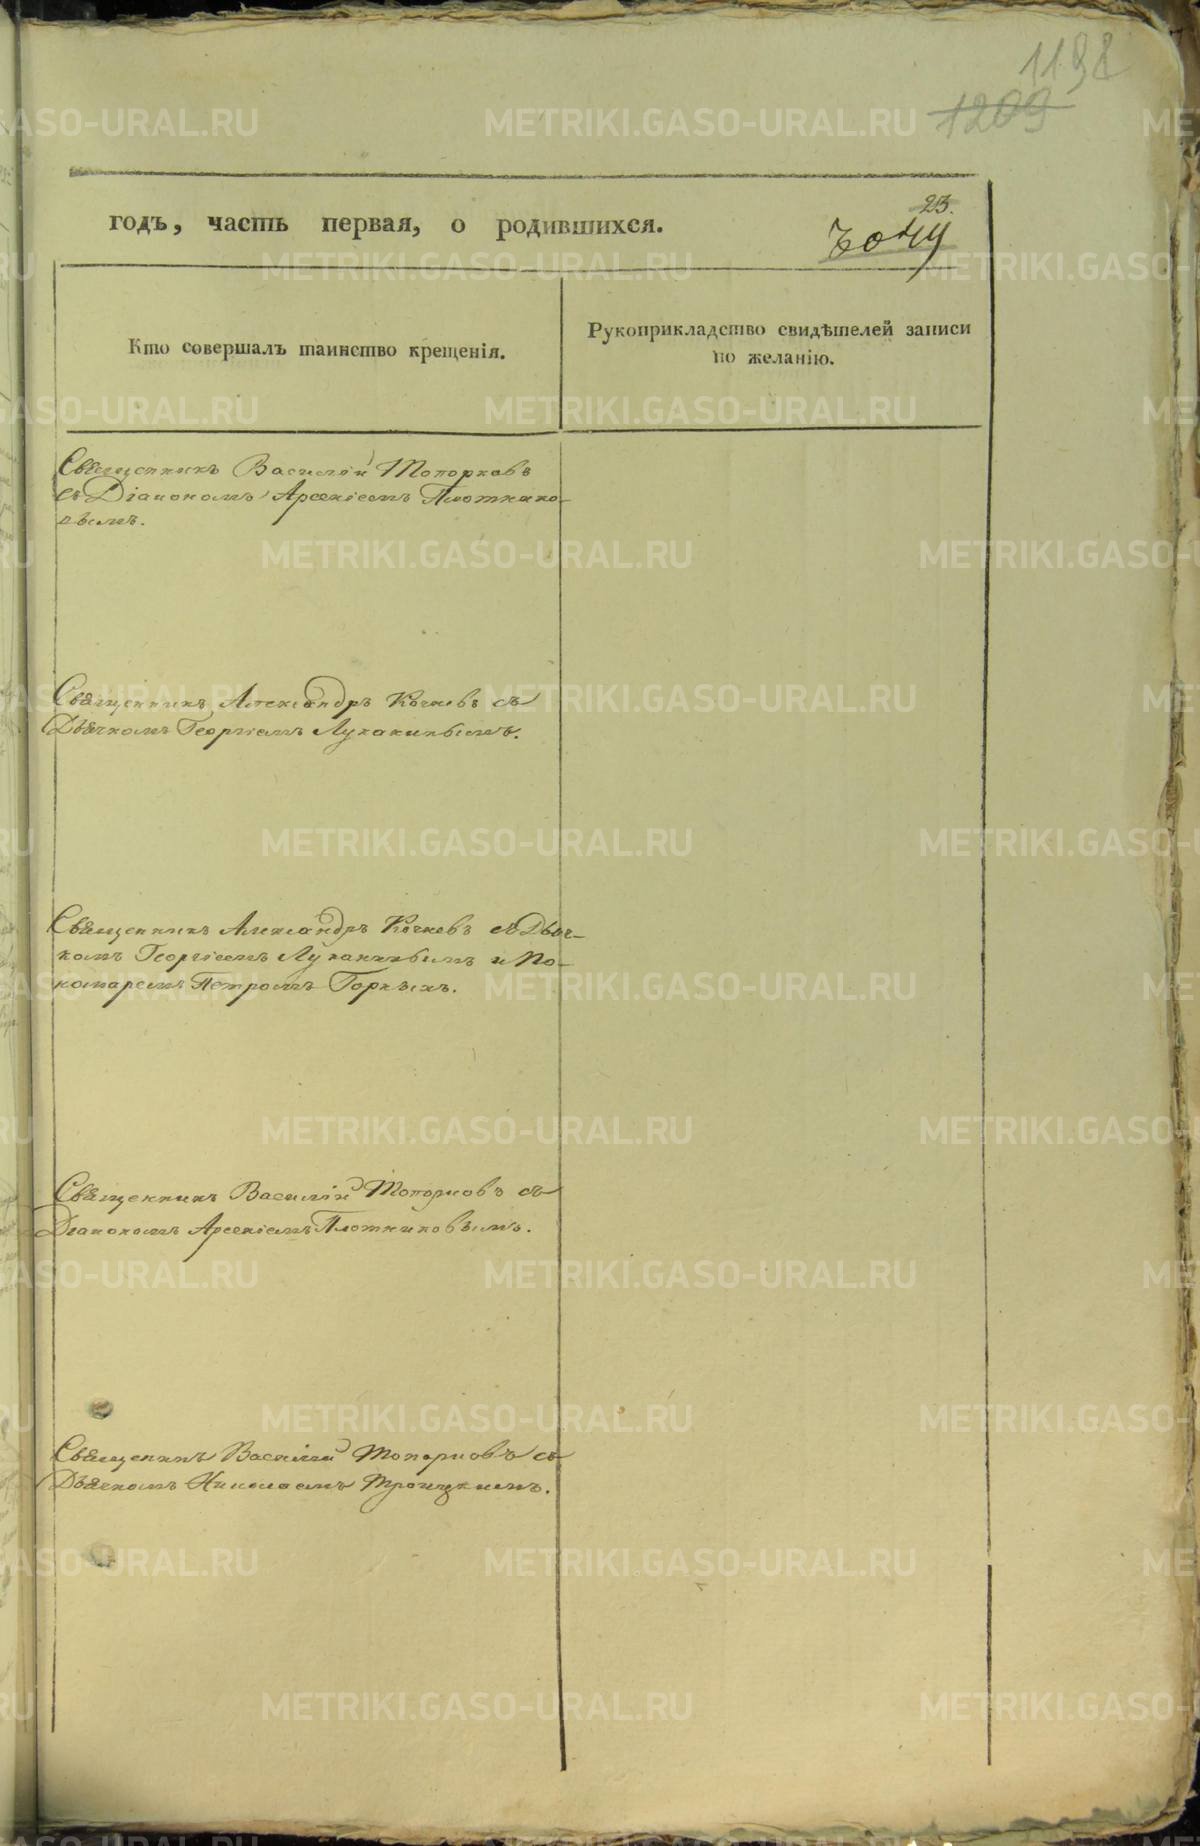 1198
1209
23.
годъ, часть первая, о родившихся.
Кто совершалъ таинство крещенія.
Рукоприкладство свидѣтелей записи
по желанію.
Священникъ Василій Топорковъ
съ Діакономъ Арсеніемъ Плотнико-
вымъ.
Священникъ Александръ Кочневъ съ
Дьячкомъ Георгіемъ Луканинымъ.
Священникъ Александръ Кочневъ съ Дьяч-
комъ Георгіемъ Луканинымъ и По-
номаремъ Петромъ Горныхъ.
Священникъ Василій Топорковъ съ
Діакономъ Арсеніемъ Плотниковымъ.
Священникъ Василій Топорковъ съ
Дьячкомъ Николаемъ Троицкимъ.
METRIKI.GASO-URAL.RU